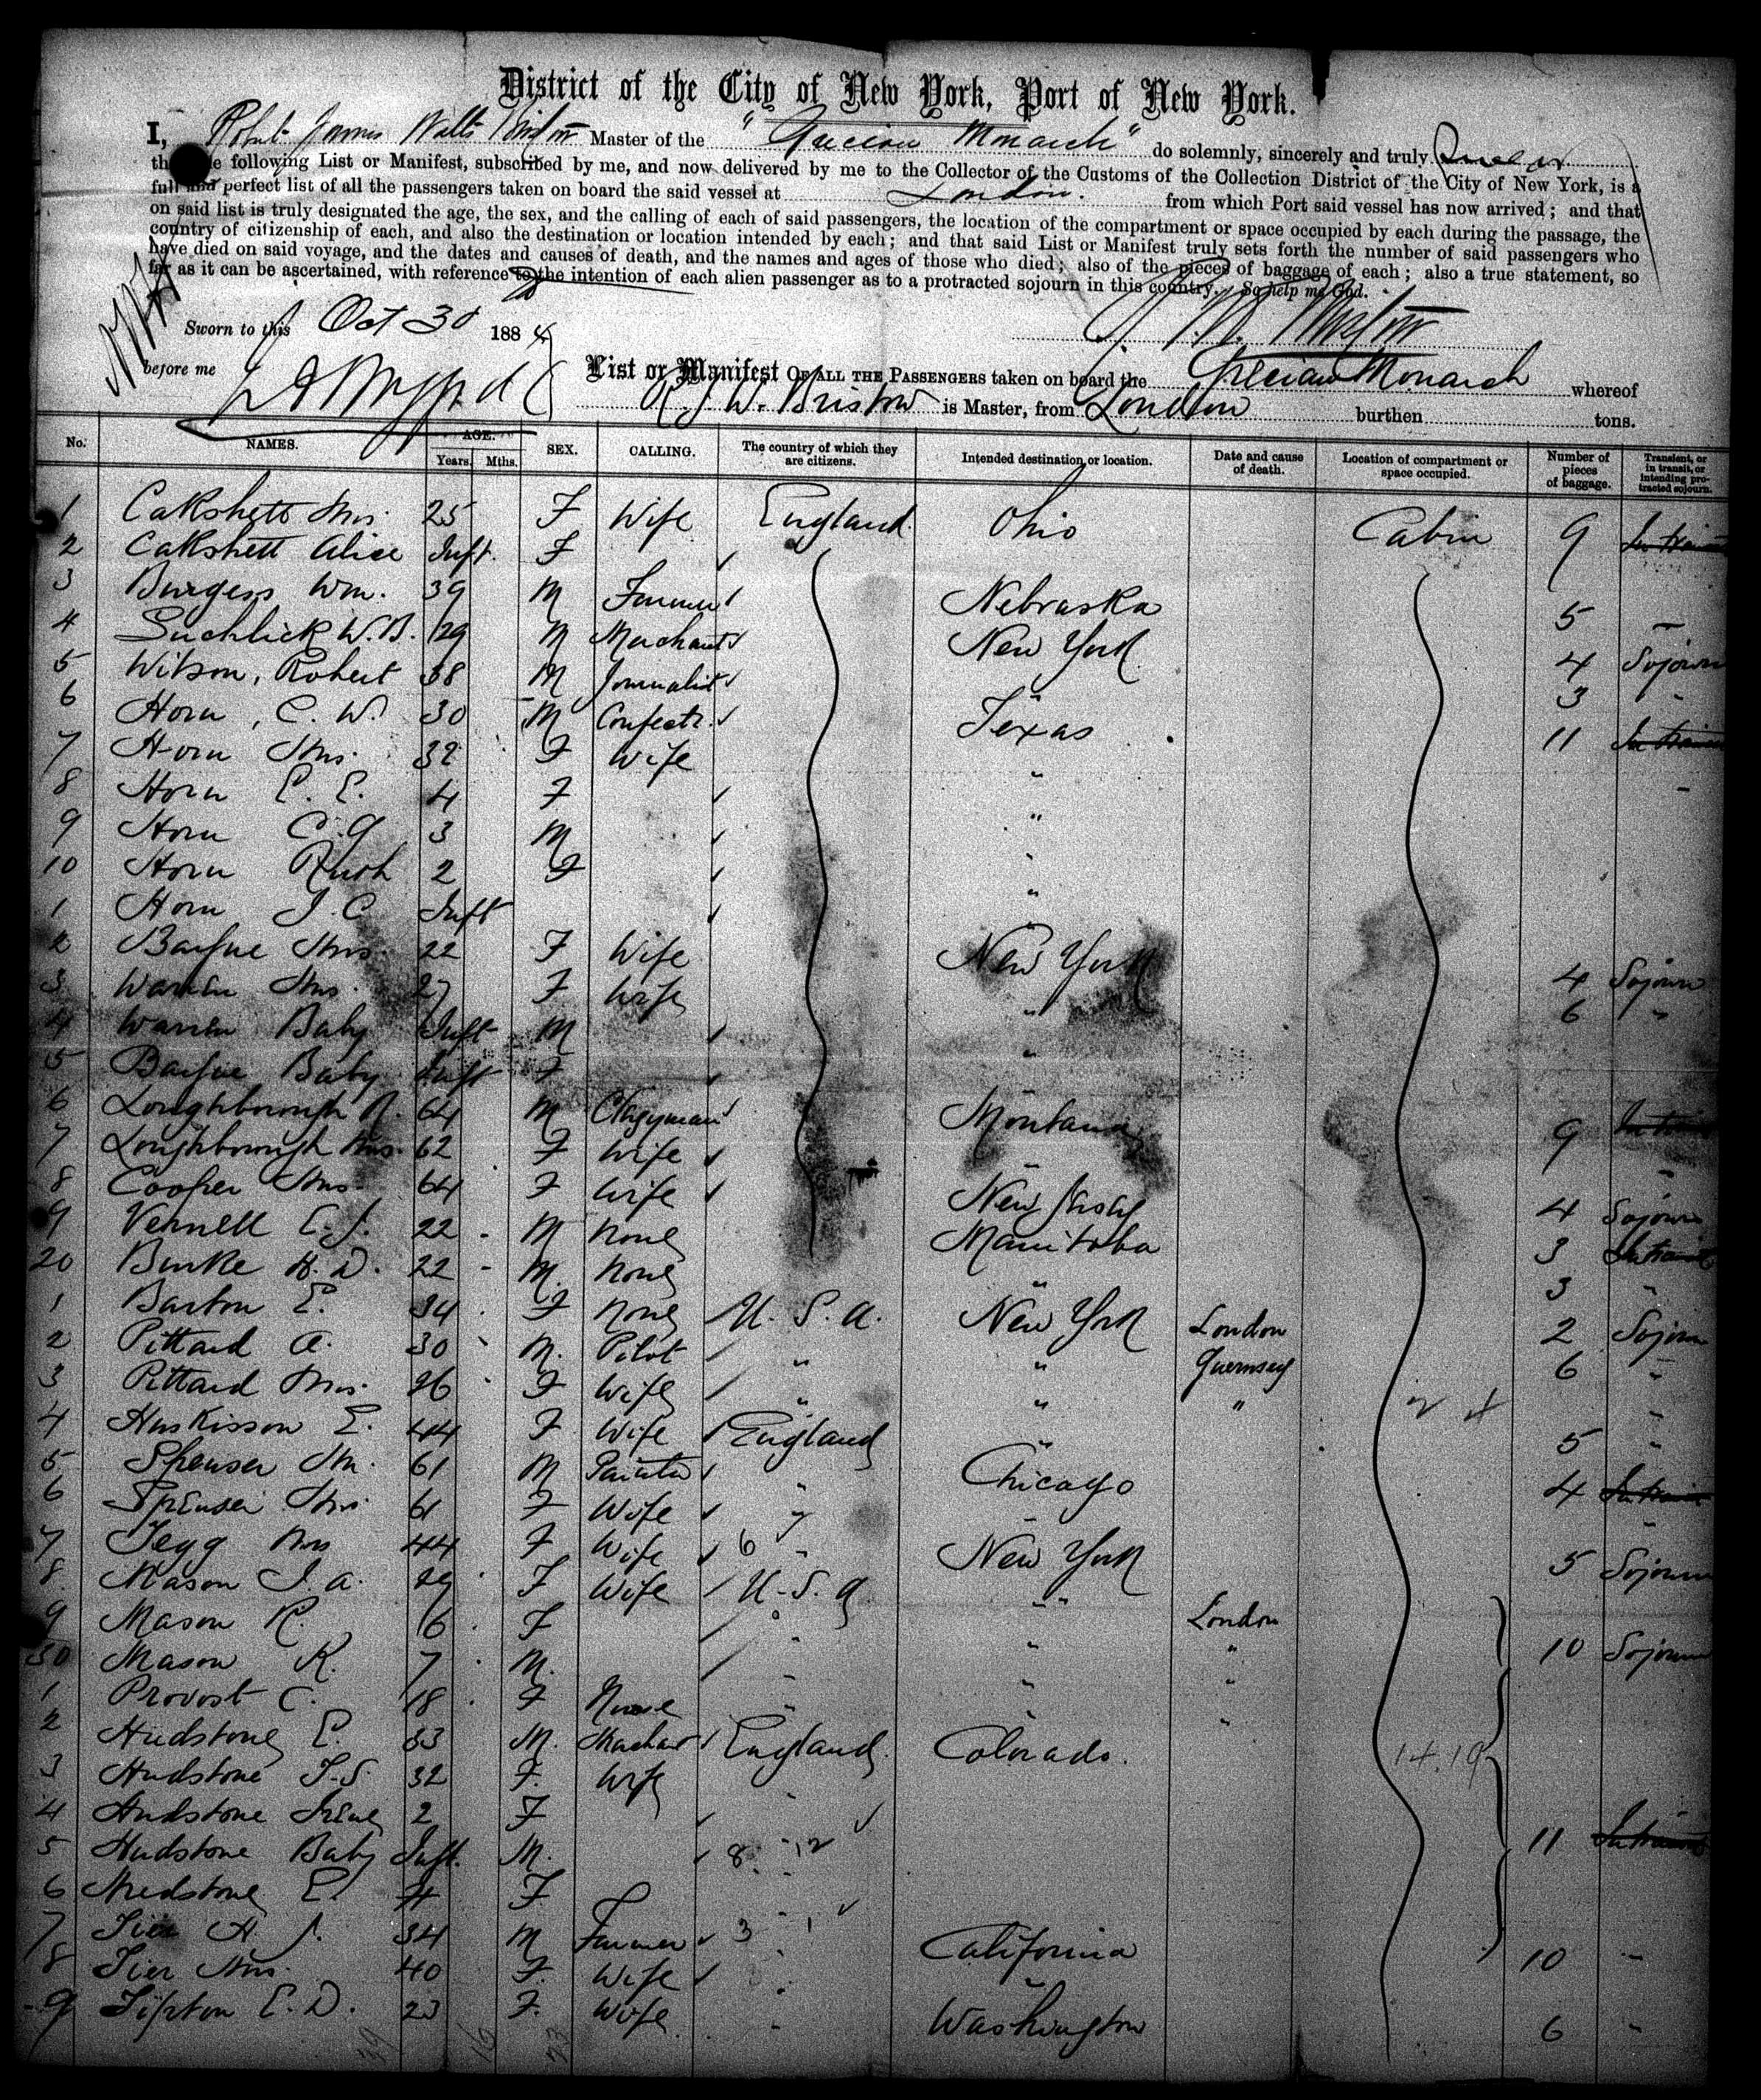 District of the City of New York, Port of New York.
I, Robert James Watts Bristow Master of the "Grecian Monarch" do solemnly, sincerely and truly Swear
the following List or Manifest, subscribed by me, and now delivered by me to the Collector of the Customs of the Collection District of the City of New York, is a
full and perfect list of all the passengers taken on board the said vessel at London. from which Port said vessel has now arrived; and that
on said list is truly designated the age, the sex, and the calling of each of said passengers, the location of the compartment or space occupied by each during the passage, the
country of citizenship of each, and also the destination or location intended by each; and that said List or Manifest truly sets forth the number of said passengers who
have died on said voyage, and the dates and causes of death, and the names and ages of those who died; also of the pieces of baggage of each; also a true statement, so
far as it can be ascertained, with reference to the intention of each alien passenger as to a protracted sojourn in this country. So help me God.
Sworn to this Oct 30 1884
before me
List or Manifest OF ALL THE PASSENGERS taken on board the Grecian Monarch whereof
R J W. Bristow is Master, from London burthen tons.
No. NAMES. AGE. Years. Mths. SEX. CALLING. The country of which they are citizens. Intended destination or location. Date and cause of death. Location of compartment or space occupied. Number of pieces of baggage. Transient, or in transit, or intending protracted sojourn.
1 Cakshett Mrs. 25 F Wife England. Ohio Cabin 9 In transit
2 Cakshett Alice Inft. F
3 Burgess Wm. 39 M Farmer Nebraska 5 "
4 W.B. 29 M Merchant New York 4 Sojourn
5 Wilson, Robert 38 M Journalist 3 "
6 Horn, C. W. 30 M Confectr. Texas 11 In transit
7 Horn Mrs. 32 F Wife "
8 Horn E. E. 4 F " "
9 Horn C. G 3 M "
10 Horn Ruth 2 F "
1 Horn J. C Inft "
2 Mrs 22 F Wife New York 4 Sojourn
3 Warren Mrs. 27 F Wife " 6 "
4 Warren Baby Inft M "
5 Baby Inft F
6 Loughborough R. 64 M Clergyman Montana 9 In transit
7 Loughborough Mrs. 62 F Wife " "
8 Cooper Mrs. 64 F Wife New Jersey 4 Sojourn
9 Vernell C. J. 22 M None Manitoba 3 In transit
20 Burke H. D. 22 M. None " 3 "
1 Barton E. 34 F None U. S. A. New York London 2 Sojourn
2 Pittard A. 30 M. Pilot " " Guernsey 6 "
3 Pittard Mrs. 26 F Wife " " " "
4 Huskisson E. 44 F Wife England " 5 "
5 Spenser Mr. 61 M Painter " Chicago 4 In transit
6 Spenser Mrs. 61 F Wife " "
7 Tegg Mrs 44 F Wife 6 " New York 5 Sojourn
8. Mason J. A. 29 F Wife U. S. A " London
9 Mason R. 6 F " " " 10 Sojourn
30 Mason K. 7 M. " " "
1 Provost C. 18 F Nurse " " "
2 Hudstone E. 33 M. England Colorado. 14.19
3 Hudstone J. S. 32 F. Wife
4 Hudstone Irene 2 F " 11 In transit
5 Hudstone Baby Inft. M. 8 " 12
6 Hudstone E. 4 F.
7 Tier H. J. 34 M Farmer 3 " 1 California 10 "
8 Tier Mrs. 40 F. Wife " "
9 Tipton E. D. 23 F. Wife " Washington 6 "
39 16 23